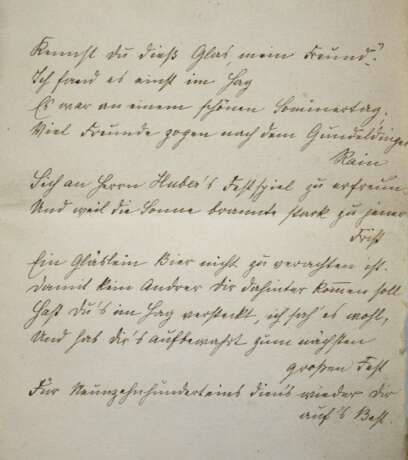 Kennst du dieß Glas, mein Freund?
Ich fand es einst im Hag
Es war an einem schönen Sommertag,
Viel Freunde zogen nach dem Gundeldinger
Rain
Sich an Herrn Huber's Festspiel zu erfreun.
Und weil die Sonne brannte stark zu jener
Frist
Ein Gläslein Bier nicht zu verachten ist.
Damit kein Andrer dir dahinter kommen soll
Hast du's im Hag versteckt, ich sah es wohl,
Und hab dir's aufbewahrt zum nächsten
großen Fest
Für Neunzehnhunderteins dien's wieder dir
auf's Best.